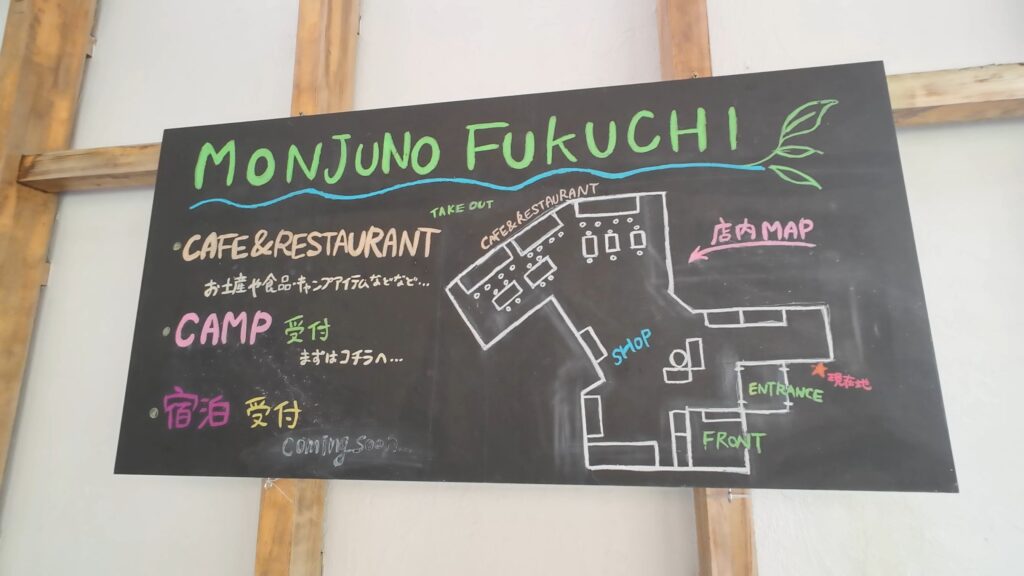 MONJUNO FUKUCHI
TAKE OUT
CAFE&RESTAURANT
お土産や食品・キャンプアイテムなどなど...
CAMP 受付
まずはコチラへ...
宿泊 受付
coming soon...
CAFE&RESTAURANT
店内MAP
SHOP
現在地
ENTRANCE
FRONT